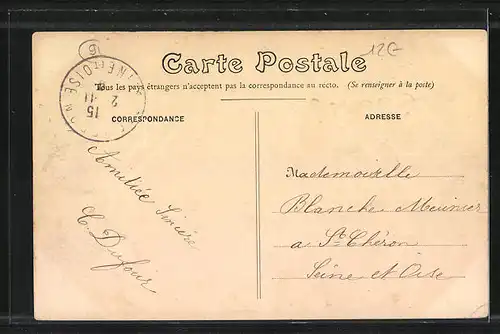 12G
6
Carte Postale
Tous les pays étrangers n'acceptent pas la correspondance au recto. (Se renseigner à la poste)
CORRESPONDANCE
ADRESSE
15
2 - 11
Amitiée Sincère
C. Dufour
Mademoiselle
Blanche Meunier
a St. Chéron
Seine et Oise